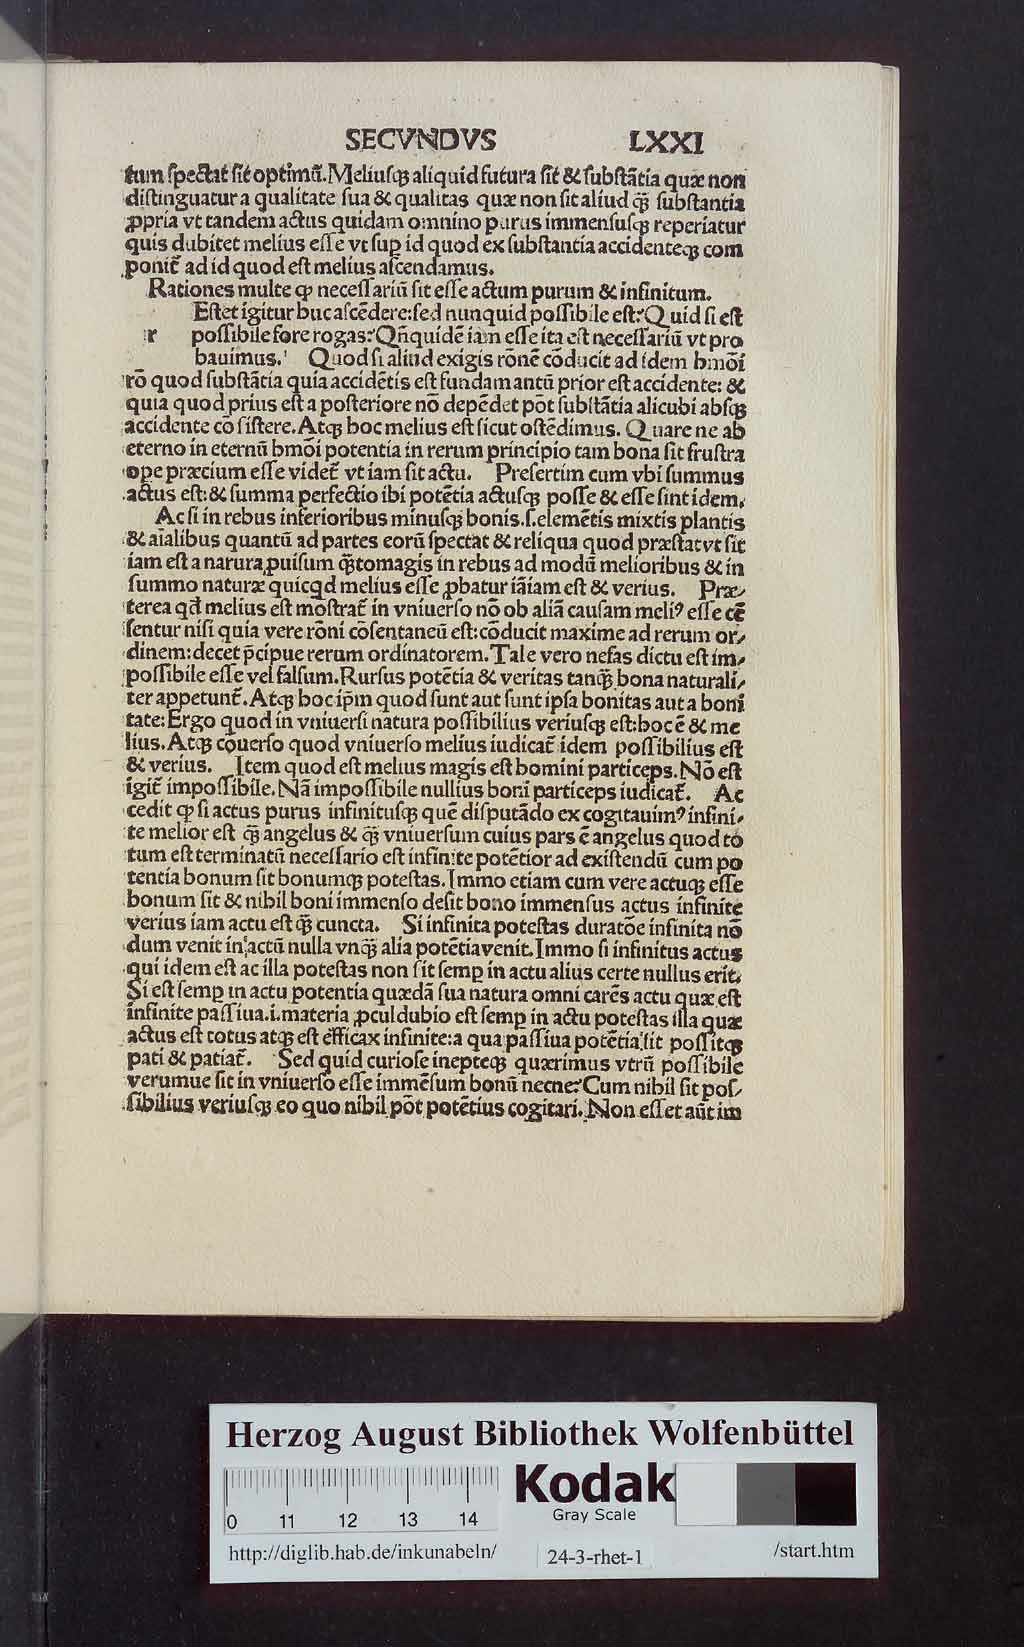 SECVNDVS LXXI
tum spectat sit optimū. Meliusqꝫ aliquid futura sit & substātia quæ non
distinguatur a qualitate sua & qualitas quæ non sit aliud qꝫ̄ substantia
ꝓpria vt tandem actus quidam omnino purus immensusqꝫ reperiatur
quis dubitet melius esse vt suꝑ id quod ex substantia accidenteqꝫ com
ponit̄ ad id quod est melius ascendamus.
Rationes multe ꝙ necessariū sit esse actum purum & infinitum.
Estet igitur huc ascēdere: sed nunquid possibile est? Quid si est
r possibile fore rogas? Qn̄quidē iam esse ita est necessariū vt pro
bauimus. Quod si aliud exigis rōnē cōducit ad idem hmōi
rō quod substātia quia accidētis est fundamantū prior est accidente: &
quia quod prius est a posteriore nō depēdet pōt substātia alicubi absqꝫ
accidente cōsistere. Atqꝫ hoc melius est sicut ostēdimus. Quare ne ab
eterno in eternū hmōi potentia in rerum principio tam bona sit frustra
ope præcium esse videt̄ vt iam sit actu. Presertim cum vbi summus
actus est: & summa perfectio ibi potētia actusqꝫ posse & esse sint idem.
Ac si in rebus inferioribus minusqꝫ bonis .s. elemētis mixtis plantis
& aīalibus quantū ad partes eorū spectat & reliqua quod præstat vt sit
iam est a narura ꝓuisum qꝫ̄tomagis in rebus ad modū melioribus & in
summo naturæ quicqd melius esse ꝓbatur iā iam est & verius. Præ⸗
terea qd̄ melius est mostrat̄ in vniuerso nō ob aliā causam meliꝰ esse cē
sentur nisi quia vere rōni cōsentaneū est: cōducit maxime ad rerum or⸗
dinem: decet p̄cipue rerum ordinatorem. Tale vero nefas dictu est im⸗
possibile esse vel falsum. Rursus potētia & veritas tanqꝫ̄ bona naturali⸗
ter appetunt̄. Atqꝫ hoc ip̄m quod sunt aut sunt ipsa bonitas aut a boni
tate: Ergo quod in vniuersi natura possibilius veriusqꝫ est: hoc ē & me
lius. Atqꝫ cōuerso quod vniuerso melius iudicat̄ idem possibilius est
& verius. Item quod est melius magis est homini particeps. Nō est
igit̄ impossibile. Nā impossibile nullius boni particeps iudicat̄. Ac
cedit ꝙ si actus purus infinitusqꝫ quē disputādo ex cogitauimꝰ infini⸗
te melior est qꝫ̄ angelus & qꝫ̄ vniuersum cuius pars ē angelus quod to
tum est terminatū necessario est infinite potētior ad existendū cum po
tentia bonum sit bonumqꝫ potestas. Immo etiam cum vere actuqꝫ esse
bonum sit & nihil boni immenso desit bono immensus actus infinite
verius iam actu est qꝫ̄ cuncta. Si infinita potestas duratōe infinita nō
dum venit in actū nulla vnqꝫ̄ alia potētia venit. Immo si infinitus actus
qui idem est ac illa potestas non sit semꝑ in actu alius certe nullus erit.
Si est semꝑ in actu potentia quædā sua natura omni carēs actu quæ est
infinite passiua .i. materia ꝓcul dubio est semꝑ in actu potestas illa quæ
actus est totus atqꝫ est efficax infinite: a qua passiua potētia sit possitqꝫ
pati & patiat̄. Sed quid curiose inepteqꝫ quærimus vtrū possibile
verumue sit in vniuerso esse immēsum bonū necne? Cum nihil sit pos⸗
sibilius veriusqꝫ eo quo nihil pōt potētius cogitari. Non esset aūt im
Herzog August Bibliothek Wolfenbüttel
Kodak
Gray Scale
0 11 12 13 14
http://diglib.hab.de/inkunabeln/ 24-3-rhet-1 /start.htm